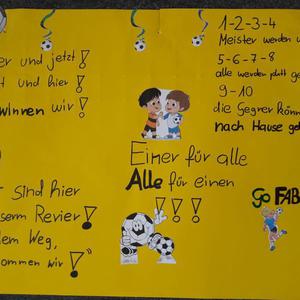 er und jetzt!
t und hier!
winnen wir!
sind hier
serm Revier!
dem Weg,
ommen wir!"
Einer für alle
Alle für einen
!!!
1-2-3-4
Meister werden w
5-6-7-8
alle werden platt ge
9-10
die Gegner könn
nach Hause geh
Go FAB